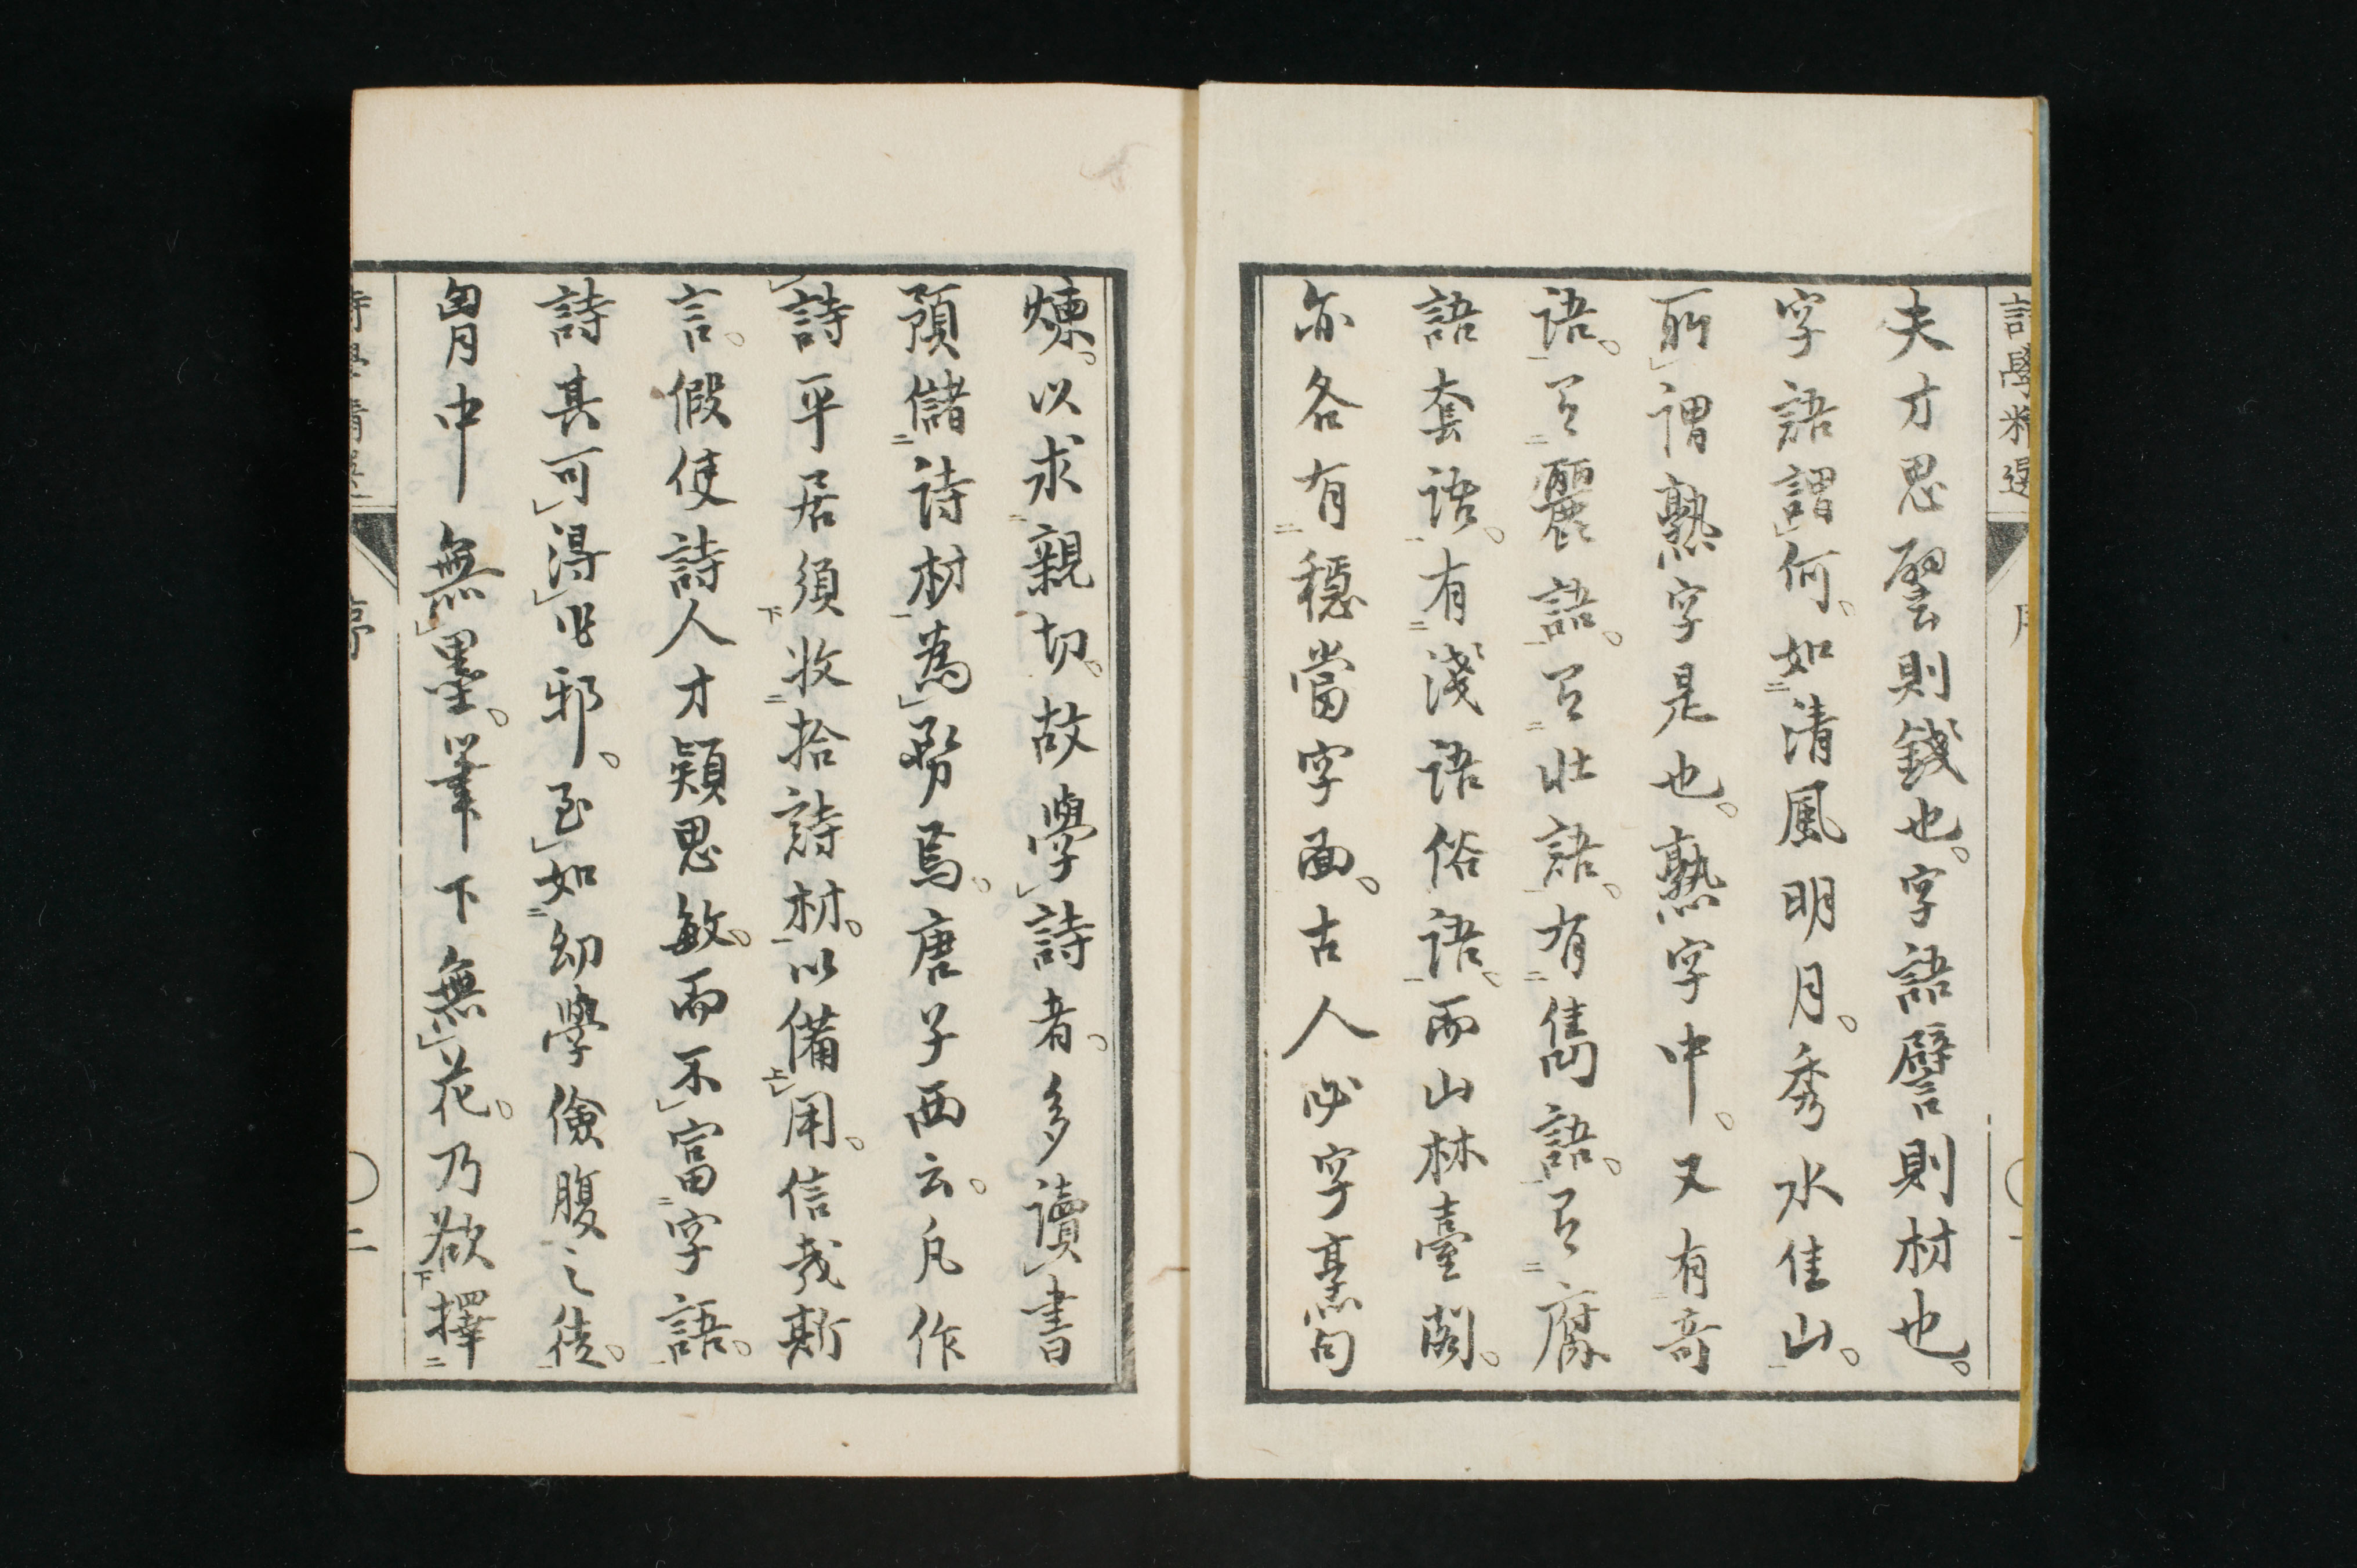 夫才思譬則錢也。字語譬則材也。
字語謂何。如清風明月。秀水佳山。
所謂熟字是也。熟字中。又有奇
語。有麗語。有壯語。有雋語。有腐
語套語。有淺語俗語。而山林臺閣。
亦各有穩當字面。古人必字烹句
煉。以求親切。故學詩者。多讀書
預儲詩材為務焉。唐子西云。凡作
詩平居須收拾詩材。以備用。信哉斯
言。假使詩人才穎思敏。而不富字語。
詩其可得也邪。至如幼學儉腹之徒。
胷中無墨。筆下無花。乃欲擇
序
二